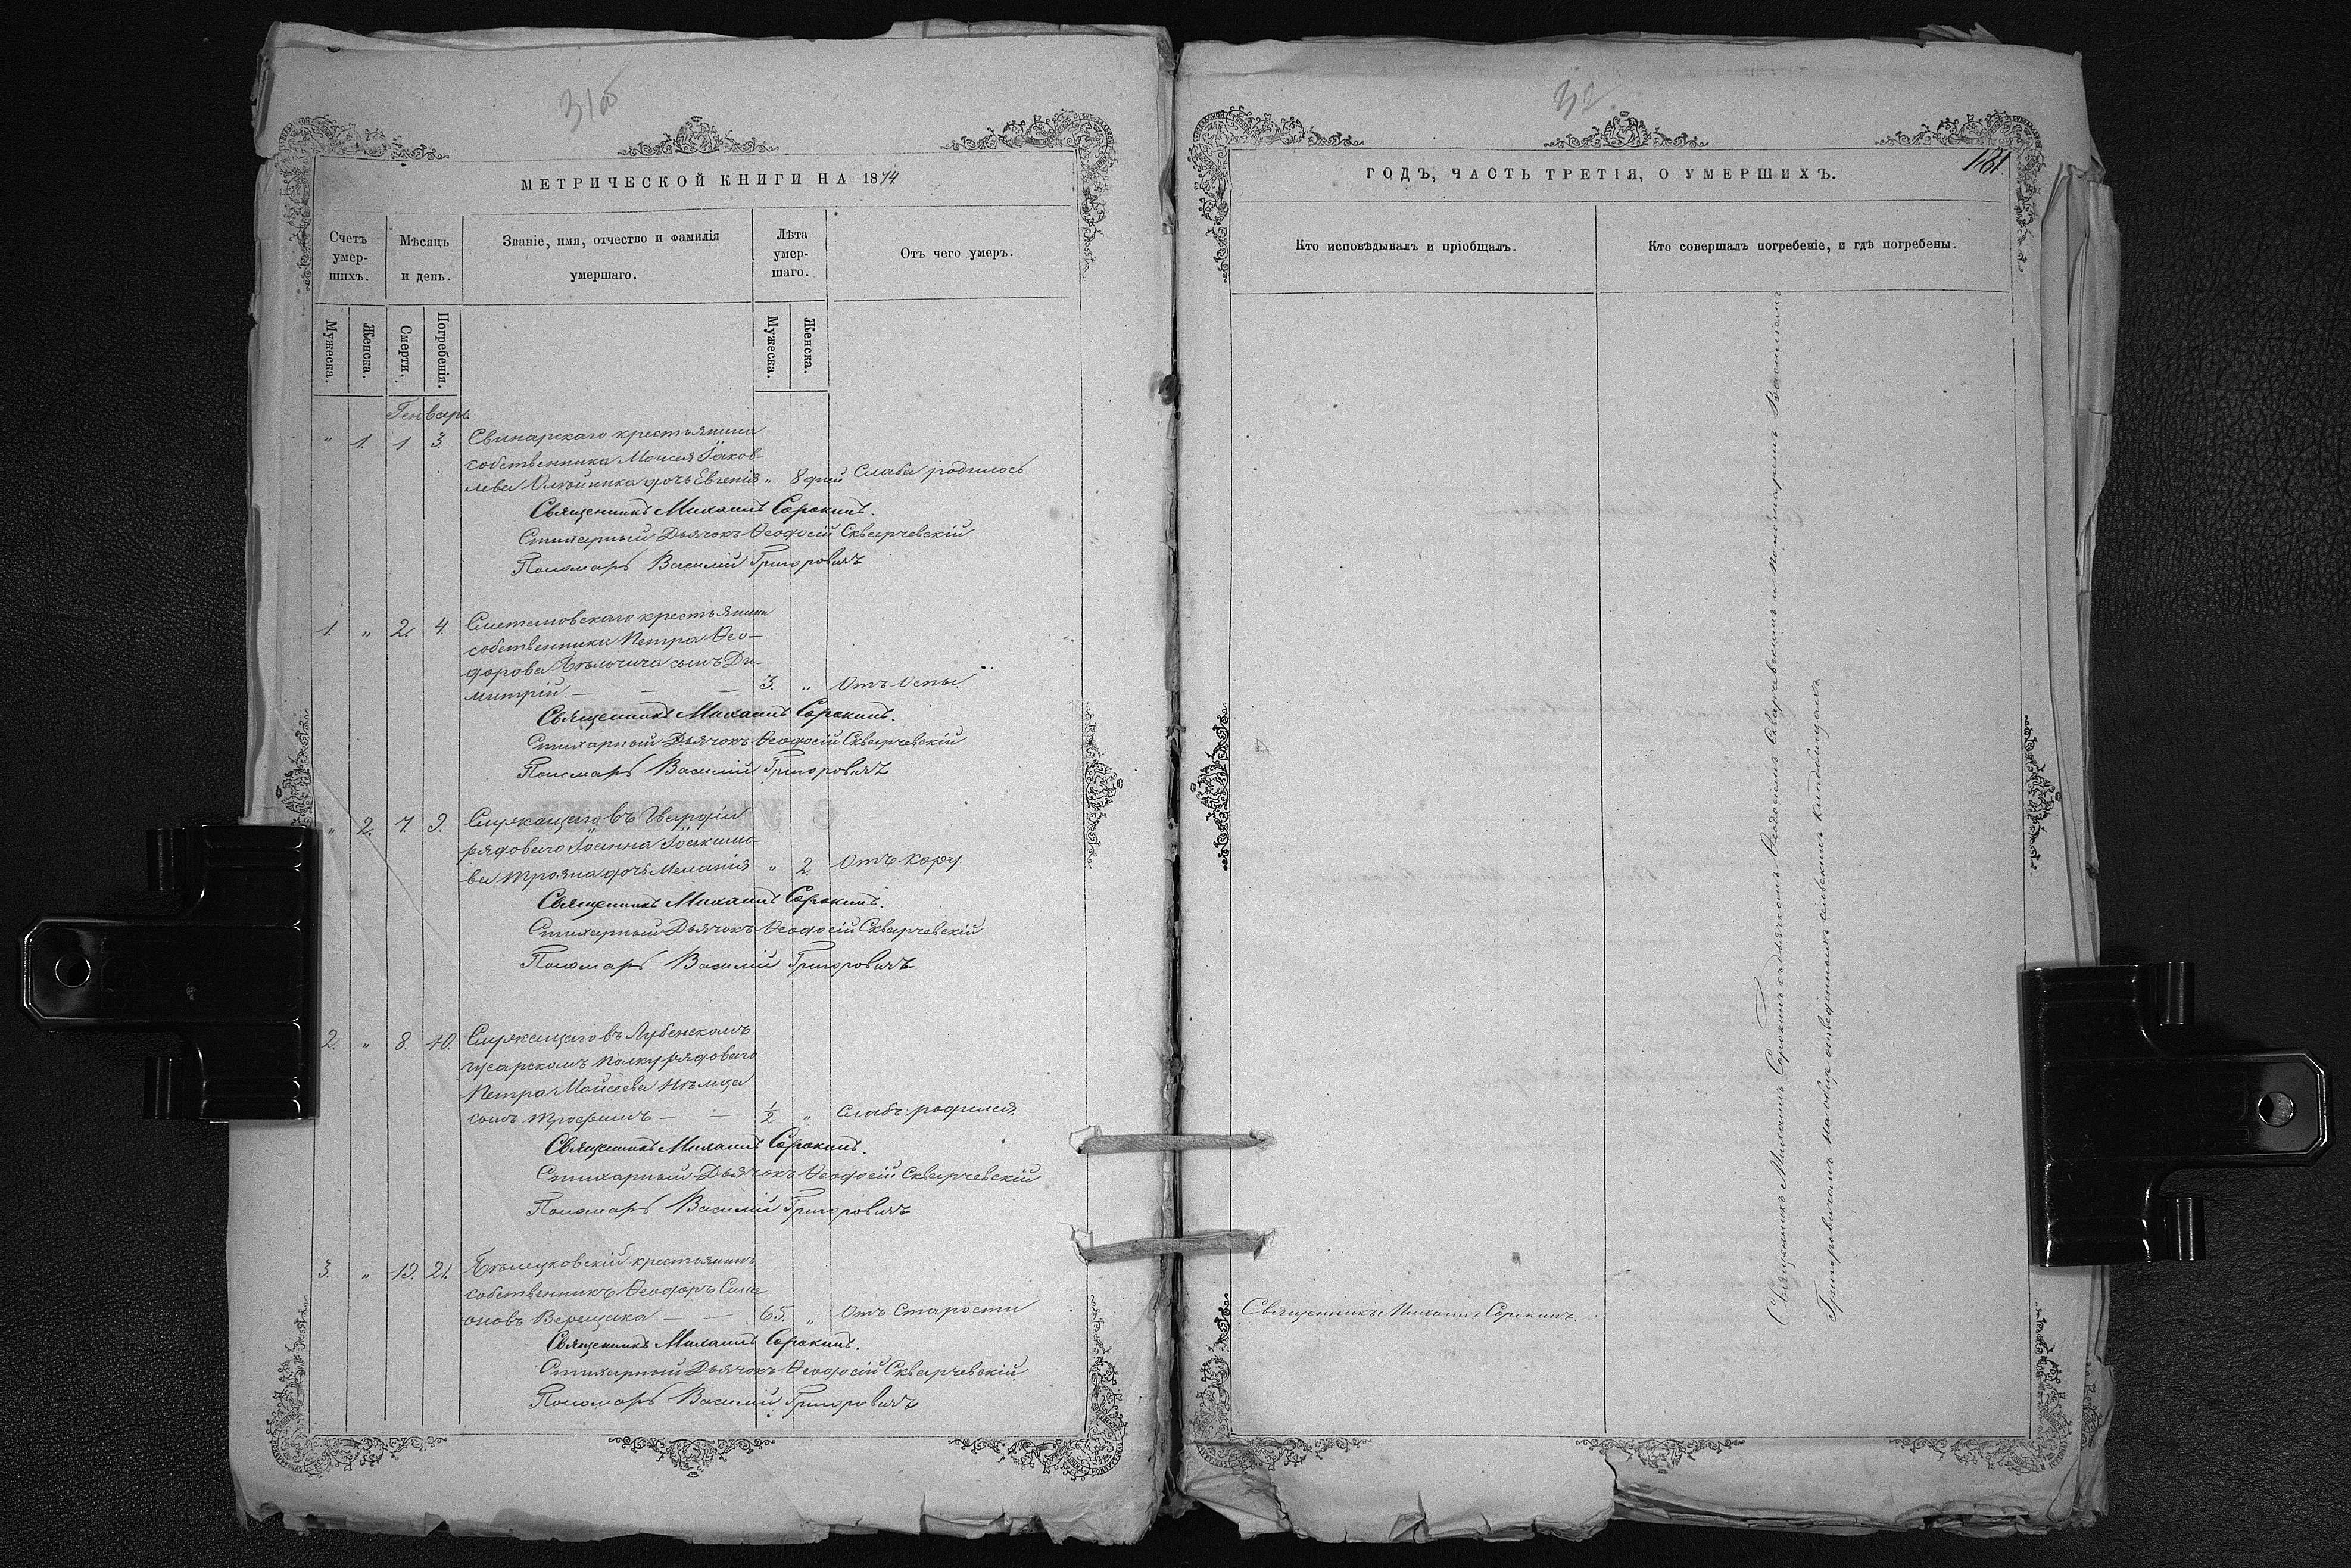 31об
МЕТРИЧЕСКОЙ КНИГИ НА 1874
Счетъ умер-шихъ.
Мѣсяцъ и день.
Званіе, имя, отчество и фамилія умершаго.
Лѣта умер-шаго.
Отъ чего умеръ.
Мужеска.
Женска.
Смерти.
Погребенія.
Мужеска.
Женска.
Генварь
" 1. 1 3. Свинарскаго крестьянина
собственника Моисея Іаков-
лева Олѣйника дочь Евгенія " 8 дней Слаба родилось
Священникъ Михаилъ Сорокинъ.
Стихарный Дьячокъ Ѳеодосій Скварчевскій
Пономарь Василій Григоровичъ
1. " 2. 4. Сметановскаго крестьянина
собственника Петра Ѳео-
дорова Бѣльчича сынъ Ди-
митрій. — — — 3. " Отъ Оспы.
Священникъ Михаилъ Сорокинъ.
Стихарный Дьячокъ Ѳеодосій Скварчевскій
Пономарь Василій Григоровичъ
" 2. 7. 9. Служащаго въ Гвардіи
рядоваго Іоанна Іоакимо-
ва Трояна дочь Меланія " 2. Отъ кору.
Священникъ Михаилъ Сорокинъ.
Стихарный Дьячокъ Ѳеодосій Скварчевскій
Пономарь Василій Григоровичъ
2. " 8. 10. Служащаго въ Лубенскомъ
гусарскомъ полку рядоваго
Петра Моисеева Нѣмца
сынъ Трофимъ — — 1/2 " Слабъ родился.
Священникъ Михаилъ Сорокинъ.
Стихарный Дьячокъ Ѳеодосій Скварчевскій
Пономарь Василій Григоровичъ
3. " 19. 21. Бѣлецковскій крестьянинъ
собственникъ Ѳеодоръ Сима-
оновъ Верещака — — 65. " Отъ Старости
Священникъ Михаилъ Сорокинъ.
Стихарный Дьячокъ Ѳеодосій Скварчевскій
Пономарь Василій Григоровичъ
32
181.
ГОДЪ, ЧАСТЬ ТРЕТІЯ, О УМЕРШИХЪ.
Кто исповѣдывалъ и пріобщалъ.
Кто совершалъ погребеніе, и гдѣ погребены.
Священникъ Михаилъ Сорокинъ.
Священникъ Михаилъ Сорокинъ съ дьячкомъ Ѳеодосіемъ Скварчевскимъ и пономаремъ Василіемъ
Григоровичомъ на общеотведенныхъ сельскихъ кладбищахъ